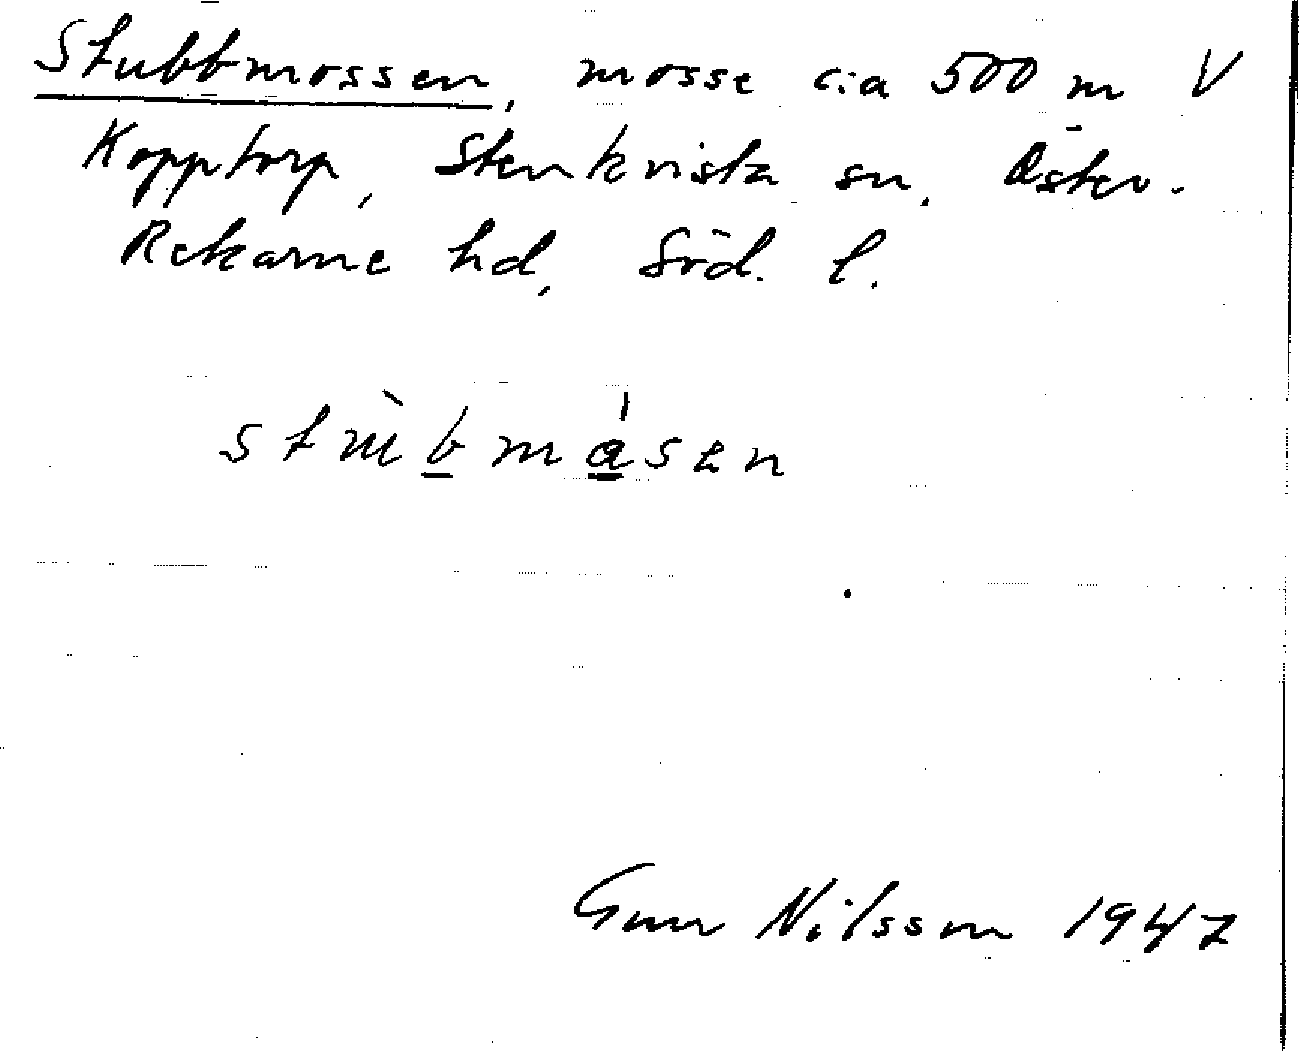 Stubbmossen, mosse c:a 500 m V
Kopptorp, Stenkvista sn, Öster-
Rekarne hd, Söd. l.
Gun Nilsson 1947